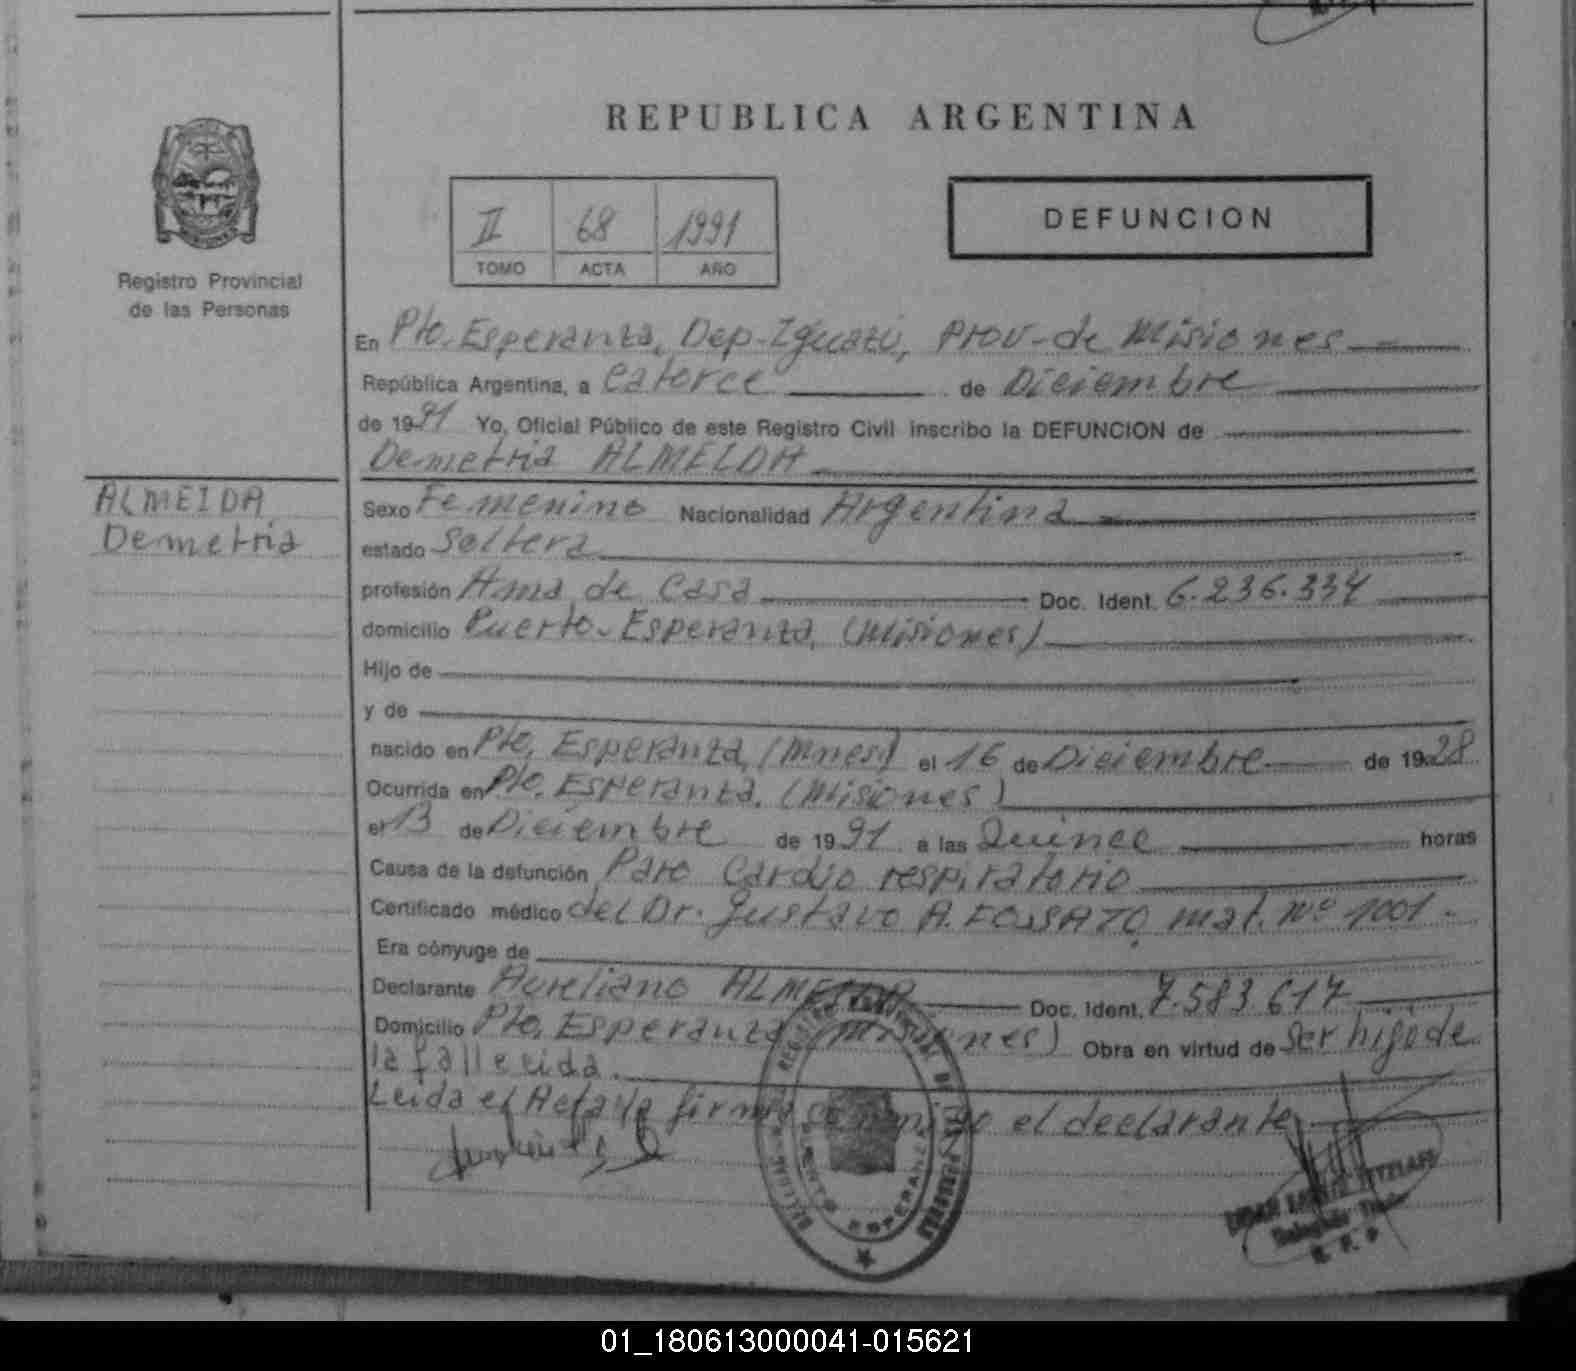 REPUBLICA ARGENTINA
II 68 1991
TOMO ACTA AÑO
DEFUNCION
Registro Provincial
de las Personas
En Pto. Esperanza, Dep-Iguazú, Prov-de Misiones
República Argentina, a Catorce de Diciembre
de 1991 Yo, Oficial Público de este Registro Civil inscribo la DEFUNCION de
Demetria ALMEIDA
ALMEIDA
Demetria
Sexo Femenino Nacionalidad Argentina
estado Soltera
profesión Ama de Casa Doc. Ident. 6.236.334
domicilio Puerto-Esperanza, (Misiones)
Hijo de
y de
nacido en Pto. Esperanza, (Mnes) el 16 de Diciembre de 1928
Ocurrida en Pto. Esperanza, (Misiones)
el 13 de Diciembre de 1991 a las Quince horas
Causa de la defunción Paro Cardio respiratorio
Certificado médico del Dr. Gustavo A. mat. Nº 1001.
Era cónyuge de
Declarante Aureliano ALMEIDA Doc. Ident. 7.583.617
Domicilio Pto. Esperanza (Misiones) Obra en virtud de ser hijo de
la fallecida.
Leida el Acta la firma conmigo el declarante
REGISTRO PROVINCIAL DE LAS PERSONAS
PUERTO ESPERANZA
R. P. P
01_180613000041-015621